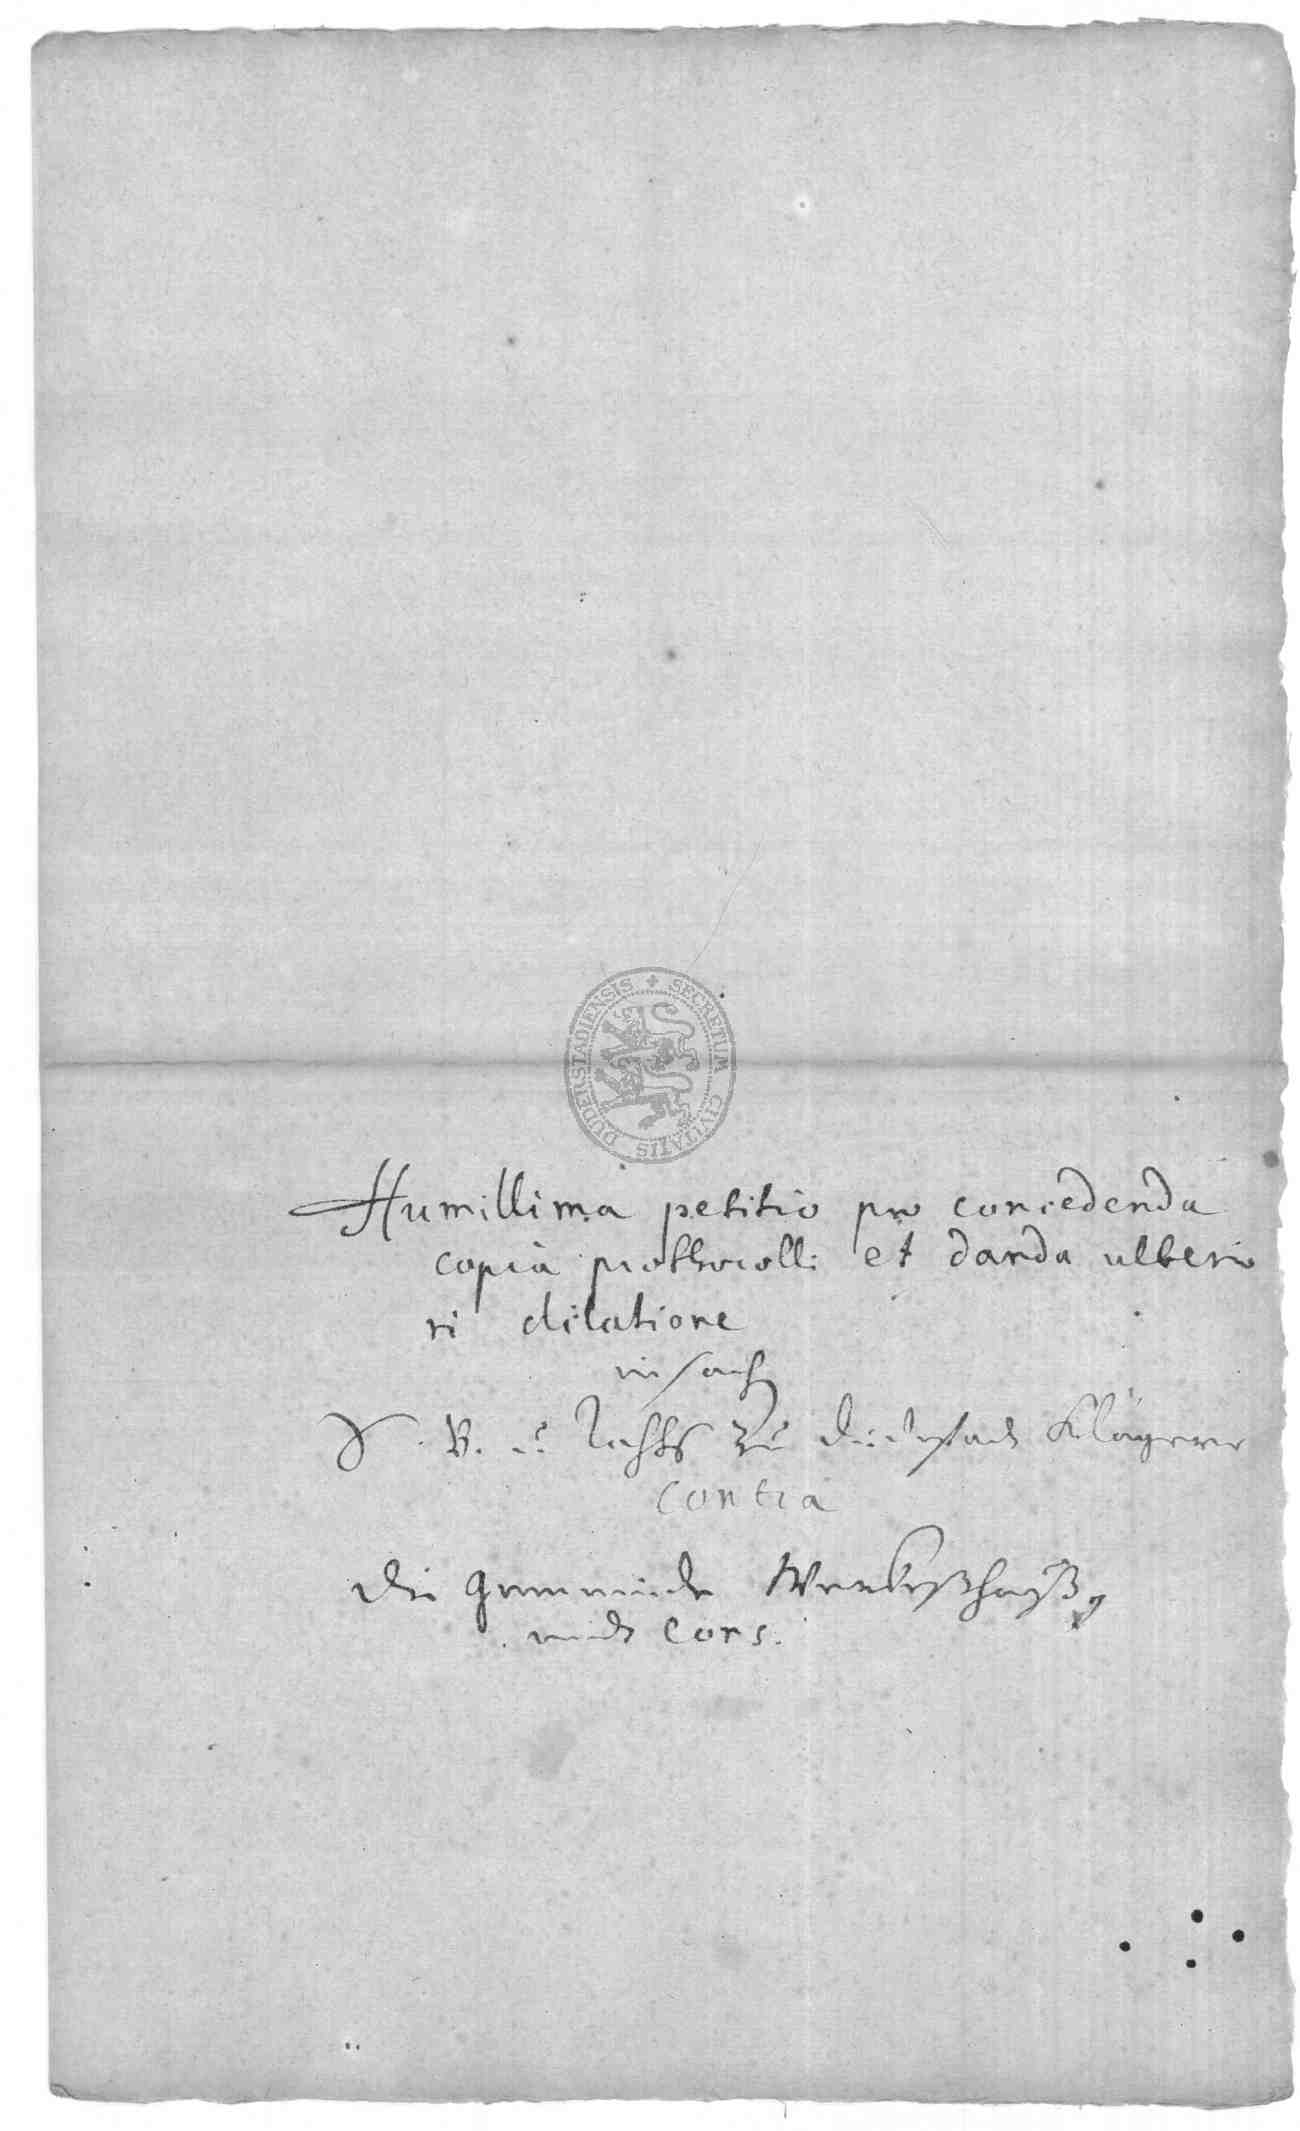 SECRETUM CIVITATIS DUDERSTADIENSIS
Humillima petitio pro concedenda
copia prothocolli et danda ulterio
ri dilatione
in sach
B. u. Rahts zu Duderstadt Klägere
contra
die gemeinde Werbeßhaußen
undt Cons.